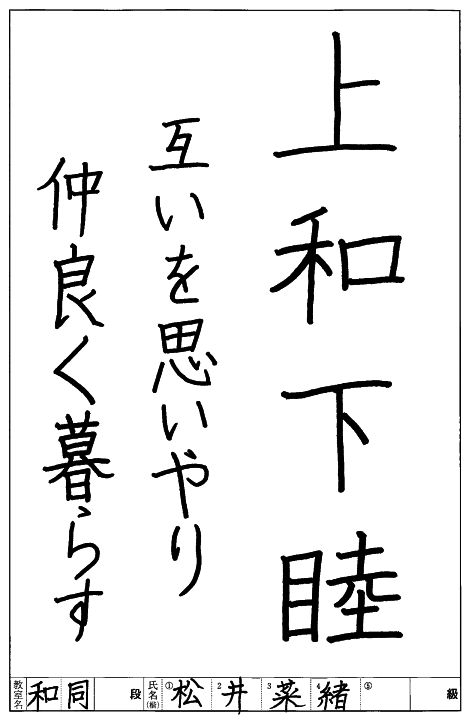 上和下睦
互いを思いやり
仲良く暮らす
教室名 和同 段 氏名(楷) ①松 2井 3菜 4緒 ⑤ 級